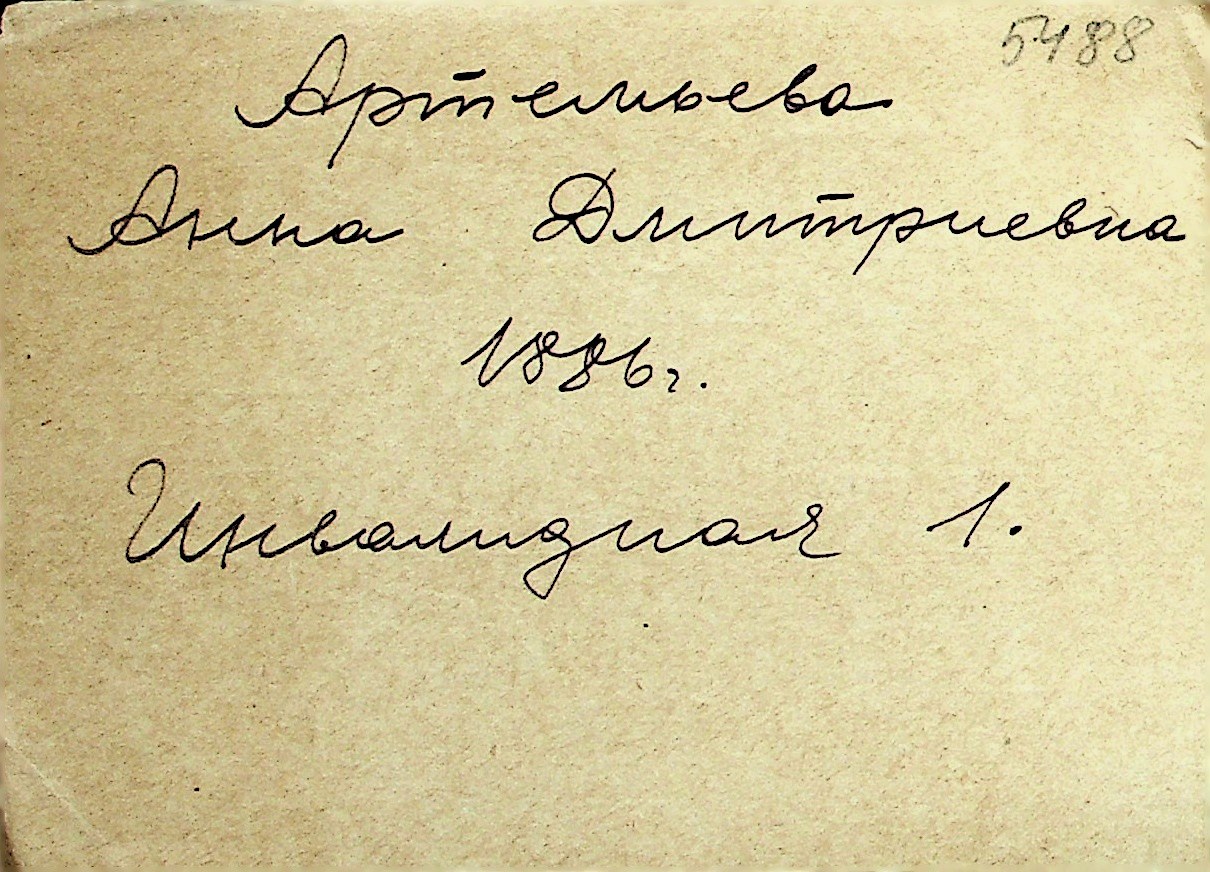 5488
Артемьева
Анна Дмитриевна
1886г.
Инвалидная 1.